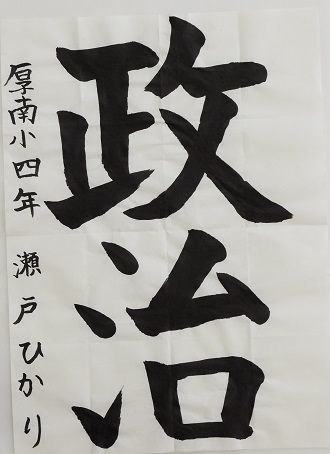 政治
厚南小四年 瀬戸ひかり